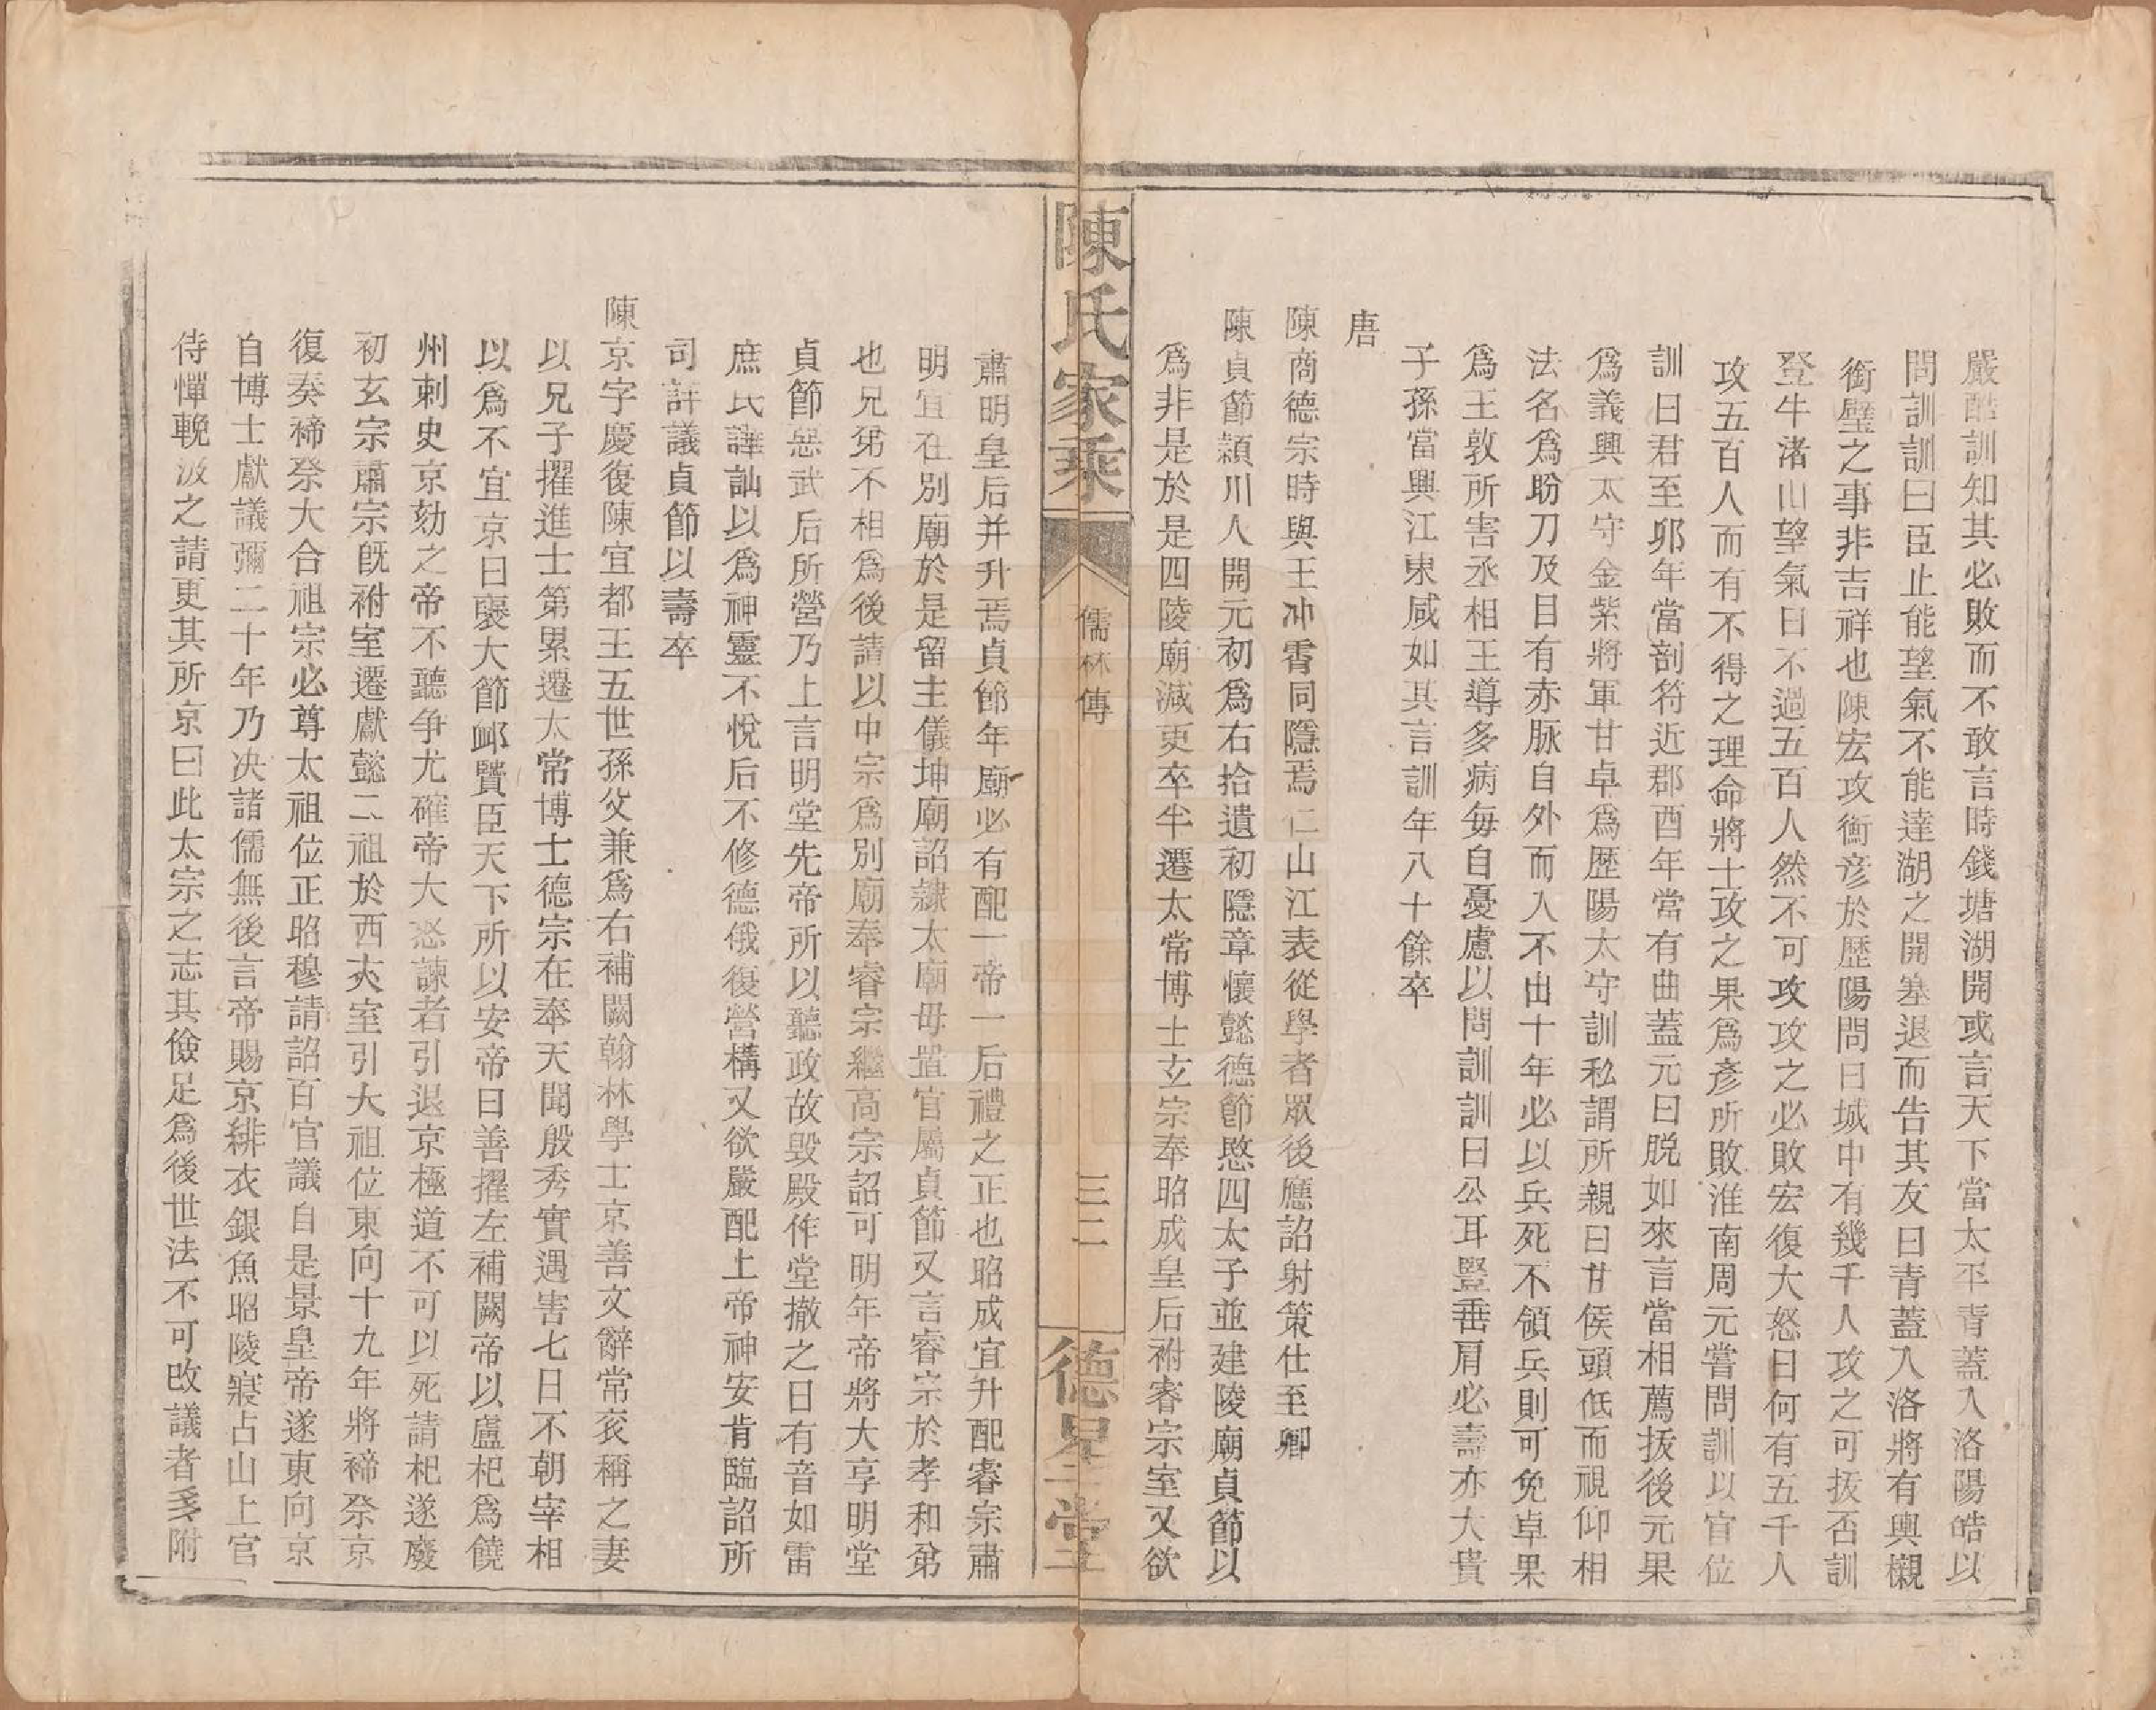 嚴酷訓知其必敗而不敢言時錢塘湖開或言天下當太平青蓋入洛陽皓以
問訓訓曰臣止能望氣不能達湖之開塞退而告其友曰青蓋入洛將有輿櫬
銜璧之事非吉祥也陳宏攻衡彥於歷陽問曰城中有幾千人攻之可拔否訓
登牛渚山望氣曰不過五百人然不可攻攻之必敗宏復大怒曰何有五千人
攻五百人而有不得之理命將士攻之果爲彥所敗淮南周元嘗問訓以官位
訓曰君至邜年當剖符近郡酉年當有曲蓋元曰脫如來言當相薦拔後元果
爲義興太守金紫將軍甘卓爲歷陽太守訓私謂所親曰甘侯頭低而視仰相
法名爲盼刀及目有赤脉自外而入不出十年必以兵死不領兵則可免卓果
爲王敦所害丞相王導多病每自憂慮以問訓訓曰公耳豎垂肩必壽亦大貴
子孫當興江東咸如其言訓年八十餘卒
唐
陳商德宗時與王冲霄同隱焉仁山江表從學者眾後應詔射策仕至卿
陳貞節潁川人開元初爲右拾遺初隱章懷懿德節愍四太子並建陵廟貞節以
爲非是於是四陵廟減吏卒半遷太常博士玄宗奉昭成皇后祔睿宗室又欲
陳氏家乘
儒林傳
三二
德星堂
肅明皇后并升焉貞節年廟必有配一帝一后禮之正也昭成宜升配睿宗肅
明宜在別廟於是留主儀坤廟詔隸太廟毋置官屬貞節又言睿宗於孝和弟
也兄弟不相爲後請以中宗爲別廟奉睿宗繼高宗詔可明年帝將大享明堂
貞節惡武后所營乃上言明堂先帝所以聽政故毀殿作堂撤之日有音如雷
庶民譁訕以爲神靈不悅后不修德俄復營構又欲嚴配上帝神安肯臨詔所
司詳議貞節以壽卒
陳京字慶復陳宜都王五世孫父兼爲右補闕翰林學士京善文辭常袞稱之妻
以兄子擢進士第累遷太常博士德宗在奉天聞殷秀實遇害七日不朝宰相
以爲不宜京曰襃大節邮賢臣天下所以安帝曰善擢左補闕帝以盧杞爲饒
州刺史京劾之帝不聽爭尤確帝大怒諫者引退京極道不可以死請杞遂廢
初玄宗肅宗既祔室遷獻懿二祖於西夾室引大祖位東向十九年將禘祭京
復奏禘祭大合祖宗必尊太祖位正昭穆請詔百官議自是景皇帝遂東向京
自博士獻議彌二十年乃決諸儒無後言帝賜京緋衣銀魚昭陵寢占山上官
侍憚輓汲之請更其所京曰此太宗之志其儉足爲後世法不可改議者多附